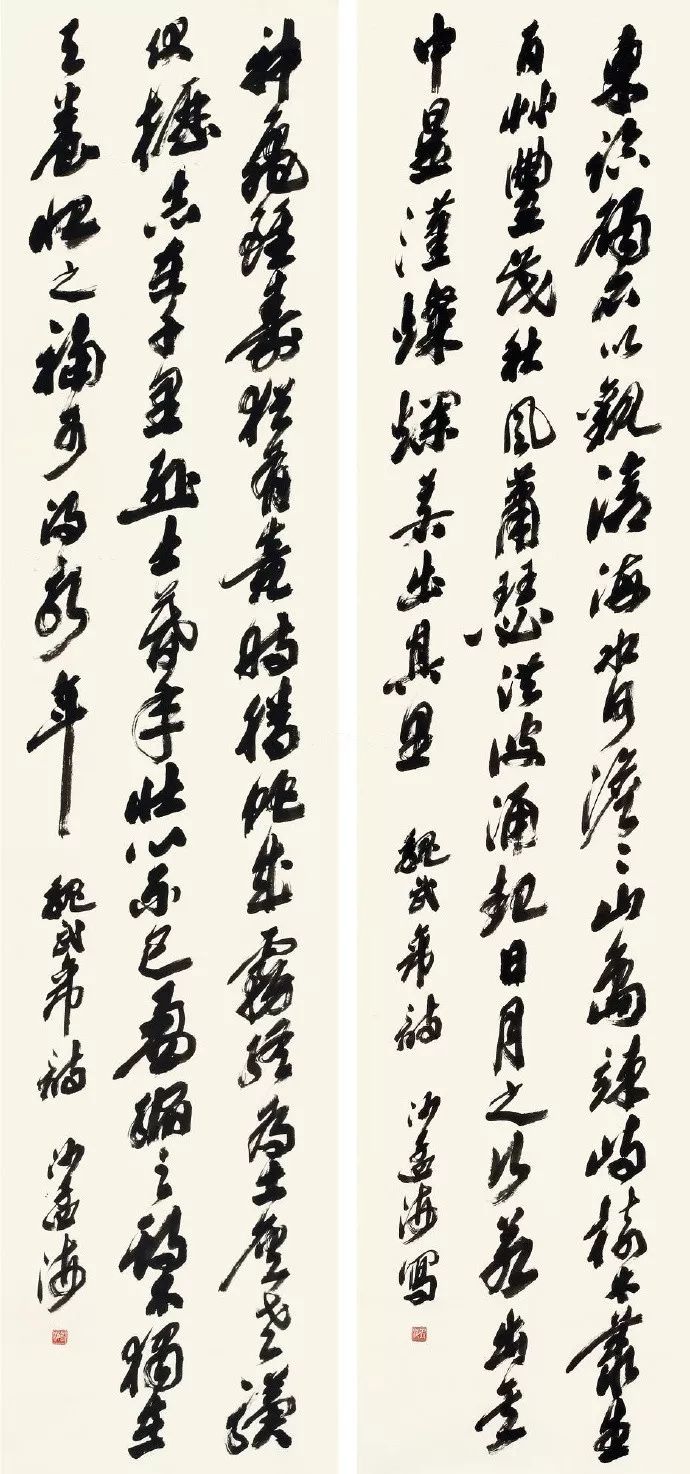 東臨碣石以觀滄海水何澹〻山島竦峙樹木叢生
百艸豐茂秋風蕭瑟洪波涌起日月之行若出其
中星漢燦爛若出其里
魏武帝詩 沙孟海寫
神龜雖壽猶有竟時騰蛇乘霧終為土灰老驥
伏櫪志在千里烈士暮年壯心不已盈縮之期不獨在
天養怡之福可得永年
魏武帝詩 沙孟海